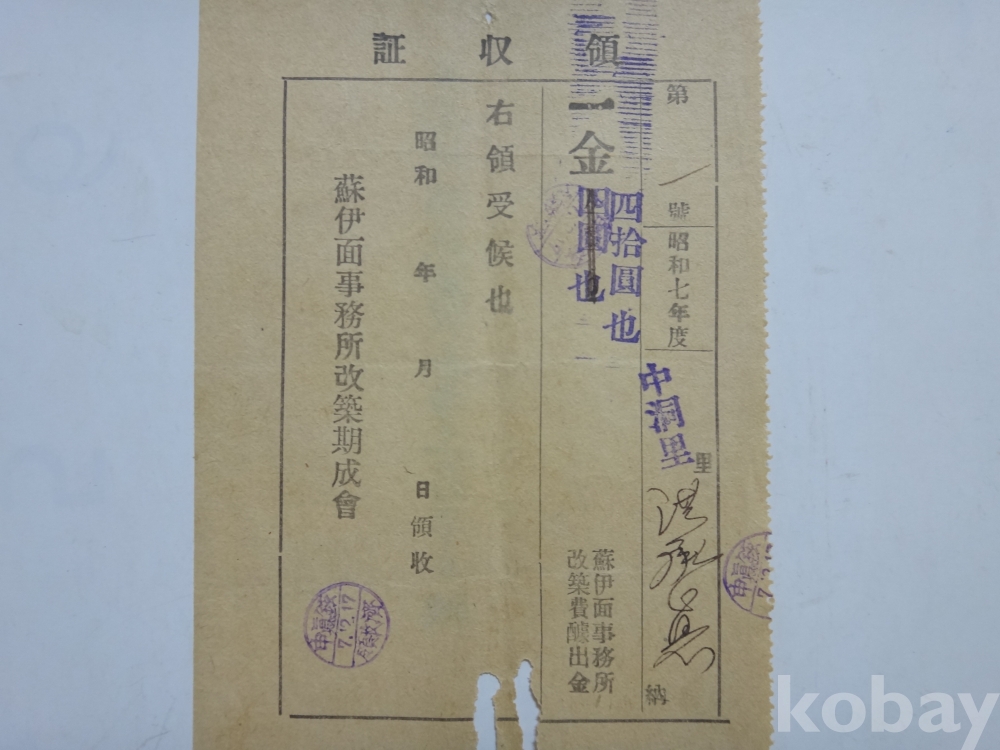 領収証
第一號
昭和七年度
中洞里
里
洪
納
一金
四拾圓也
四圓也
蘇伊面事務所
改築費醵出金
右領受候也
昭和 年 月 日領收
蘇伊面事務所改築期成會
7.2.17
kobay